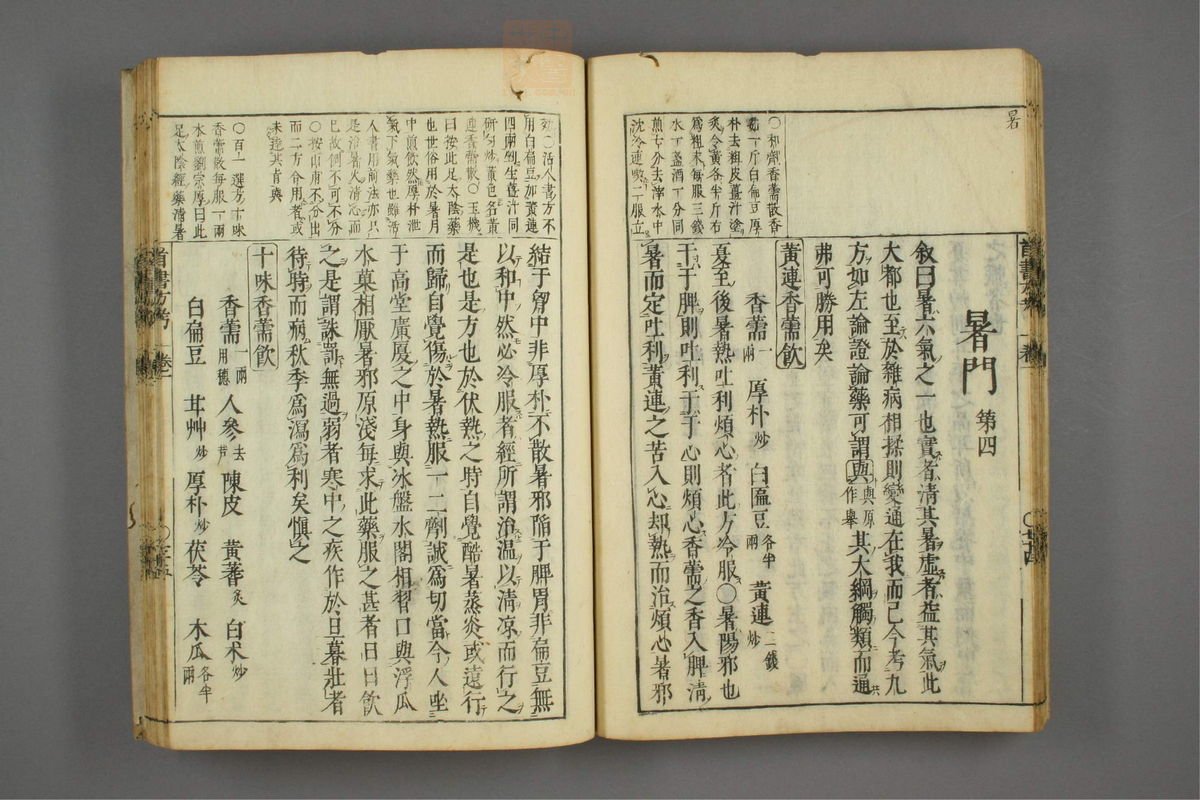 暑
〇和劑香薷散香
薷一斤白扁豆厚
朴去粗皮薑汁塗
炙令黃各半斤右
爲粗末每服三錢
水一盞酒一分同
煎七分去滓水中
沈冷連喫二服立
首書方考 卷一
暑門 第四
敘曰暑六氣之一也實者清其暑虛者益其氣此
大都也至於雜病相揉則變通在我而已今考九
方如左論證論藥可謂與與原作舉其大綱觸類而通
弗可勝用矣
黃連香薷飲
香薷一兩 厚朴炒 白匾豆各半兩 黃連二錢炒
夏至後暑熱吐利煩心者此方冷服〇暑陽邪也
干于脾則吐利干于心則煩心香薷之香入脾清
暑而定吐利黃連之苦入心却熱而治煩心暑邪
效〇活人書方不
用白扁豆加黃連
四兩剉生薑汁同
研勻炒黃色名黃
連香薷散〇玉機
曰按此足太陰藥
也世俗用於暑月
中煎飲然厚朴泄
氣下氣藥也雖活
人書用前法亦只
是治暑火清心而
已故例不可不分
〇按不分出
而二方合用者或
未達其旨與
〇百一選方十味
香薷散每服一兩
水煎劉宗厚曰此
足太陰經藥清暑
結于胷中非厚朴不散暑邪陷于脾胃非扁豆無
以和中然必冷服者經所謂治温以清凉而行之
是也是方也於伏熱之時自覺酷暑蒸炎或遠行
而歸自覺傷於暑熱服一二劑誠爲切當今人坐
于高堂廣厦之中身與冰盤水閣相習口與浮瓜
水菓相厭暑邪原淺每求此藥服之甚者日日飲
之是謂誅罰無過弱者寒中之疾作於旦暮壯者
待時而病秋季爲瀉爲利矣慎之
十味香薷飲
香薷一兩用穗 人參去 陳皮 黃蓍炙 白朮炒
白扁豆 甘艸炒 厚朴炒 茯苓 木瓜各半兩
首書方考 卷一